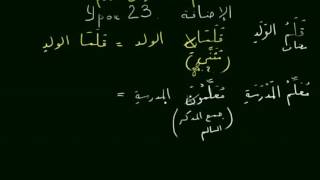 الإضافة
Урок 23
قَلَمُ الوَلَدِ
مضاف
قَلَمَانِ الولد = قَلَمَا الولدِ
(تَثْنِيَة)
مُعَلِّمُ المَدْرَسَةِ
مُعَلِّمُونَ المدرسةِ =
(جمع المذكر السالم)